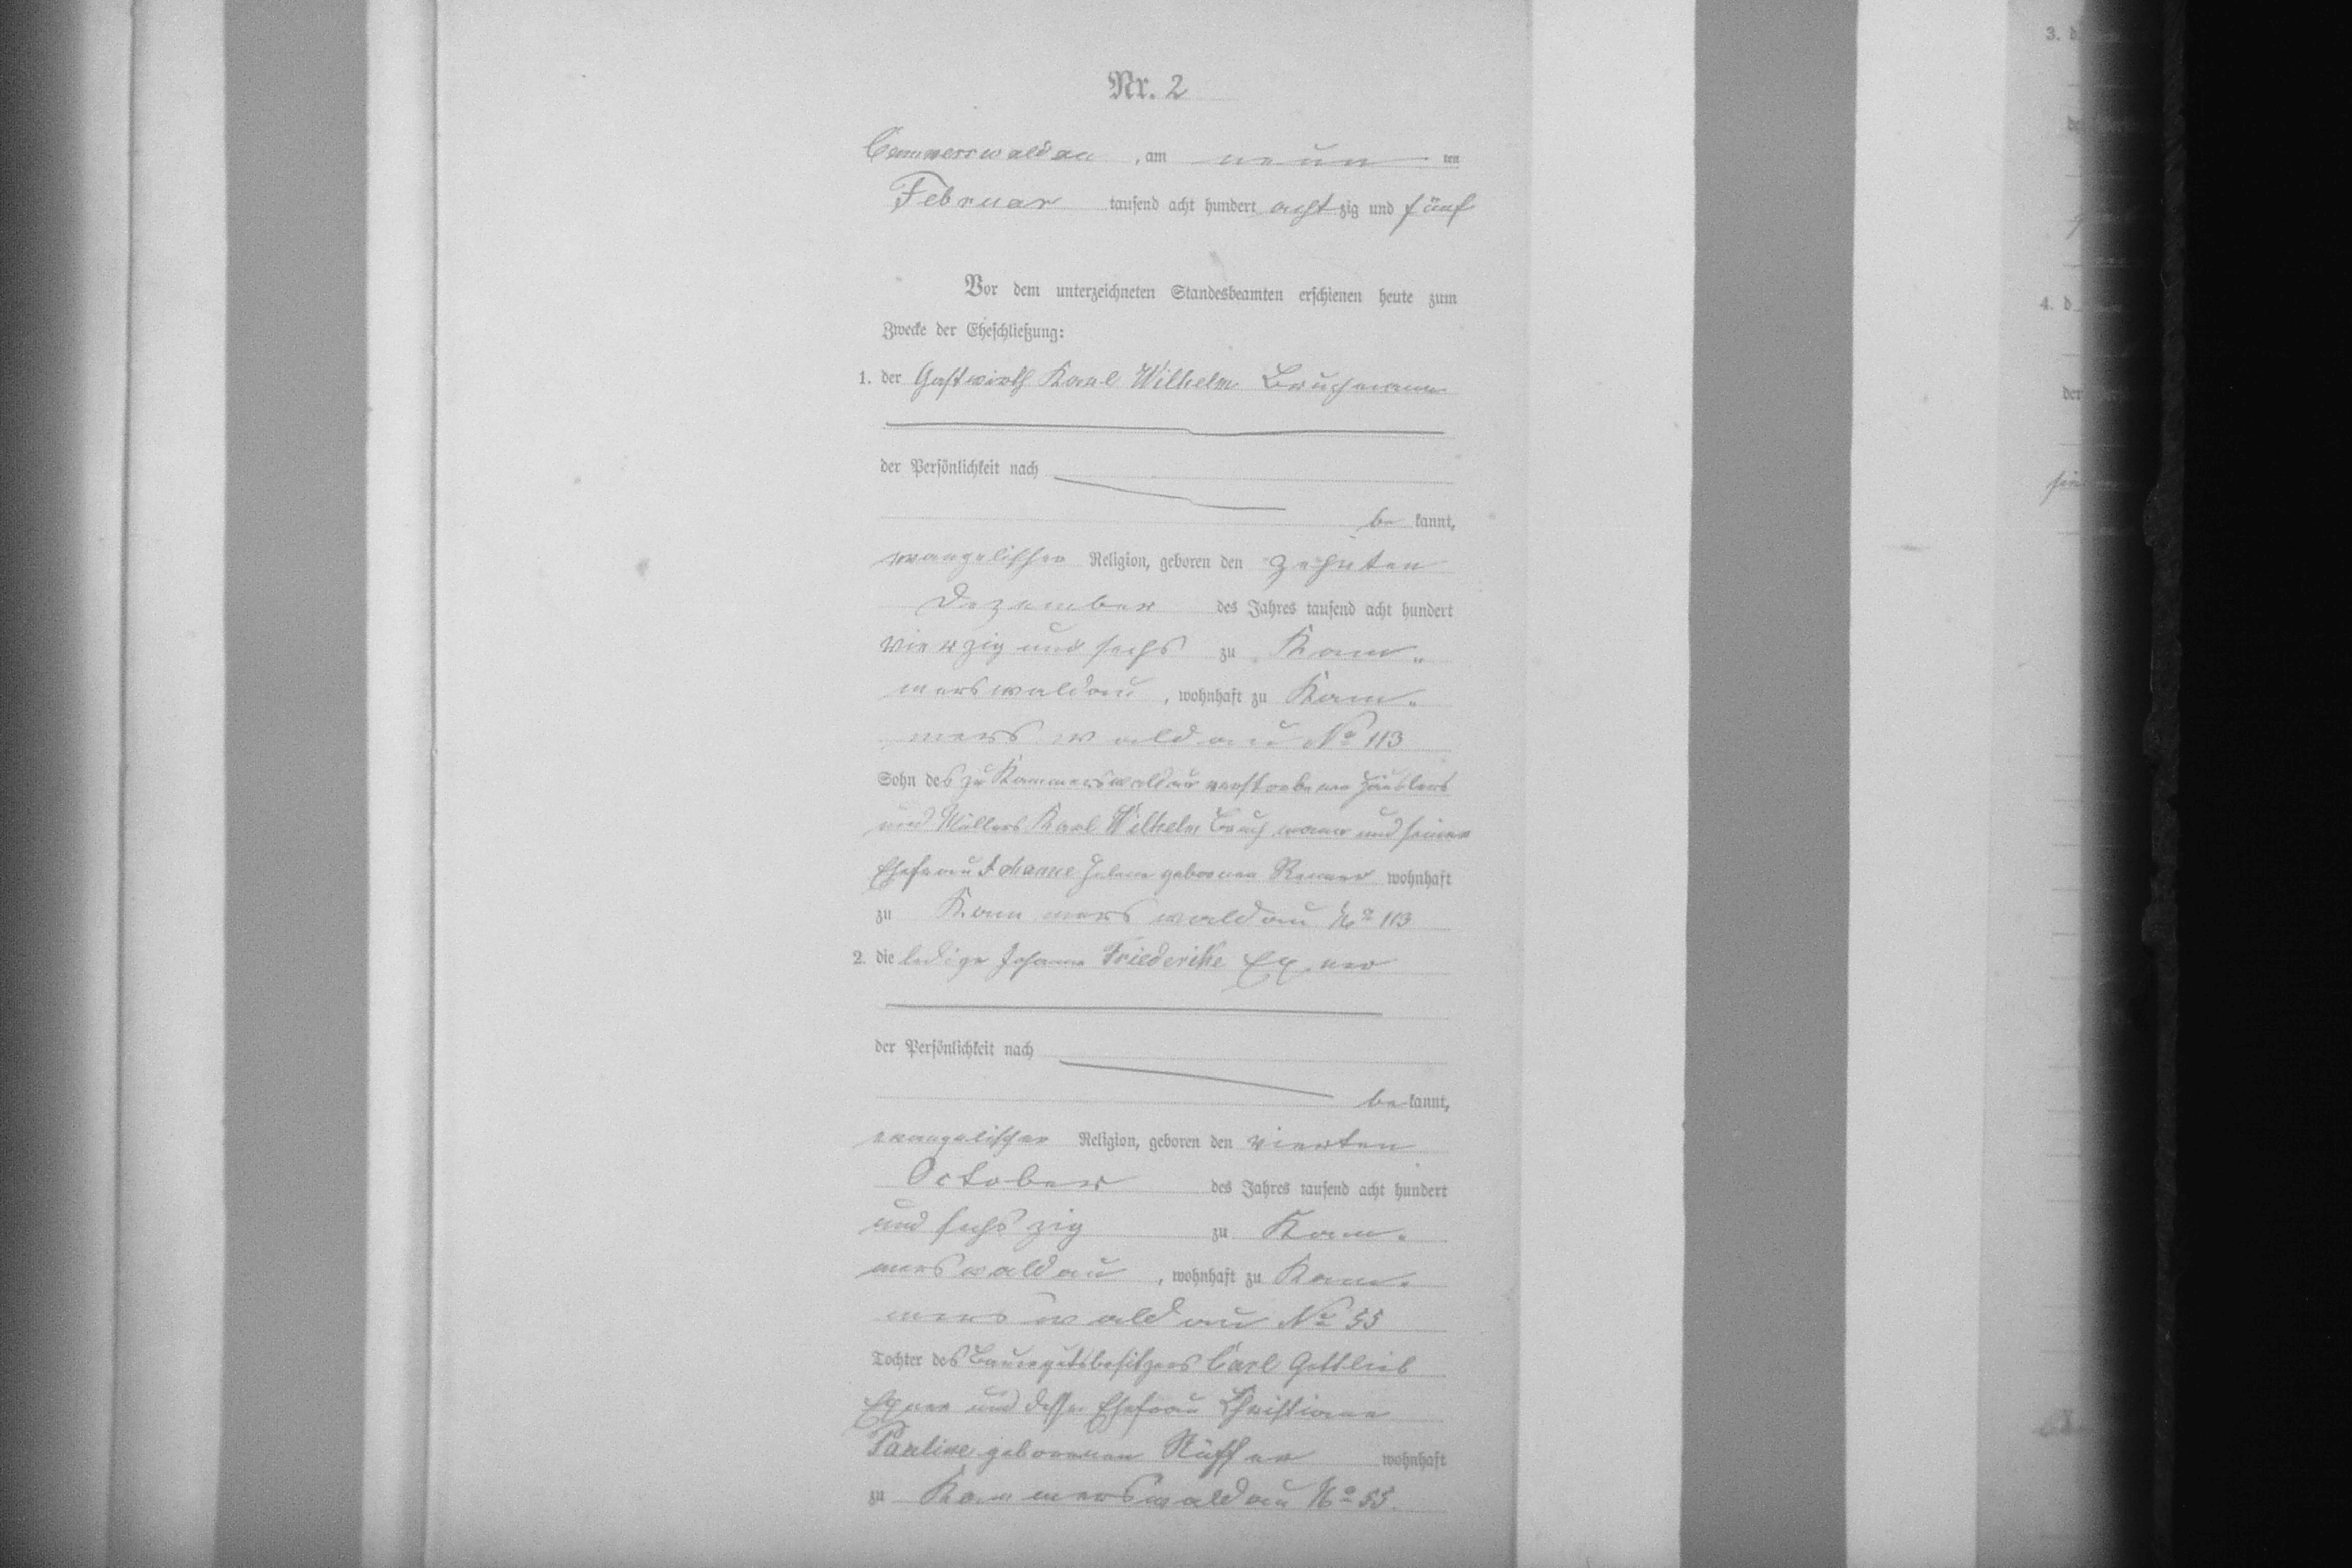 Nr. 2
Cammerswaldau, am neun ten
Februar tausend acht hundert acht zig und fünf
Vor dem unterzeichneten Standesbeamten erschienen heute zum
Zwecke der Eheschließung:
1. der Gastwirth Karl Wilhelm Bruchmann
der Persönlichkeit nach
be kannt,
evangelischer Religion, geboren den zehnten
Dezember des Jahres tausend acht hundert
vierzig und sechs zu Kam-
merswaldau, wohnhaft zu Kam-
merswaldau No 113
Sohn des zu Kammerswaldau verstorbenen Häuslers
und Müllers Karl Wilhelm Bruchmann und seiner
Ehefrau Johanne Helene geborenen Renner wohnhaft
zu Kammerswaldau No 113
2. die ledige Johanne Friederike Exner
der Persönlichkeit nach
be kannt,
evangelischer Religion, geboren den vierten
October des Jahres tausend acht hundert
und sechszig zu Kam-
merswaldau, wohnhaft zu Kam-
merswaldau No 55
Tochter des Bauergutsbesitzers Carl Gottlieb
Exner und dessen Ehefrau Christiane
Pauline geborenen Rüffer wohnhaft
zu Kammerswaldau No 55.
3. d
4. d
der